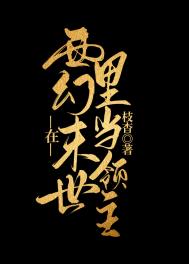 在西幻末世
里当领主
枝杳◎著